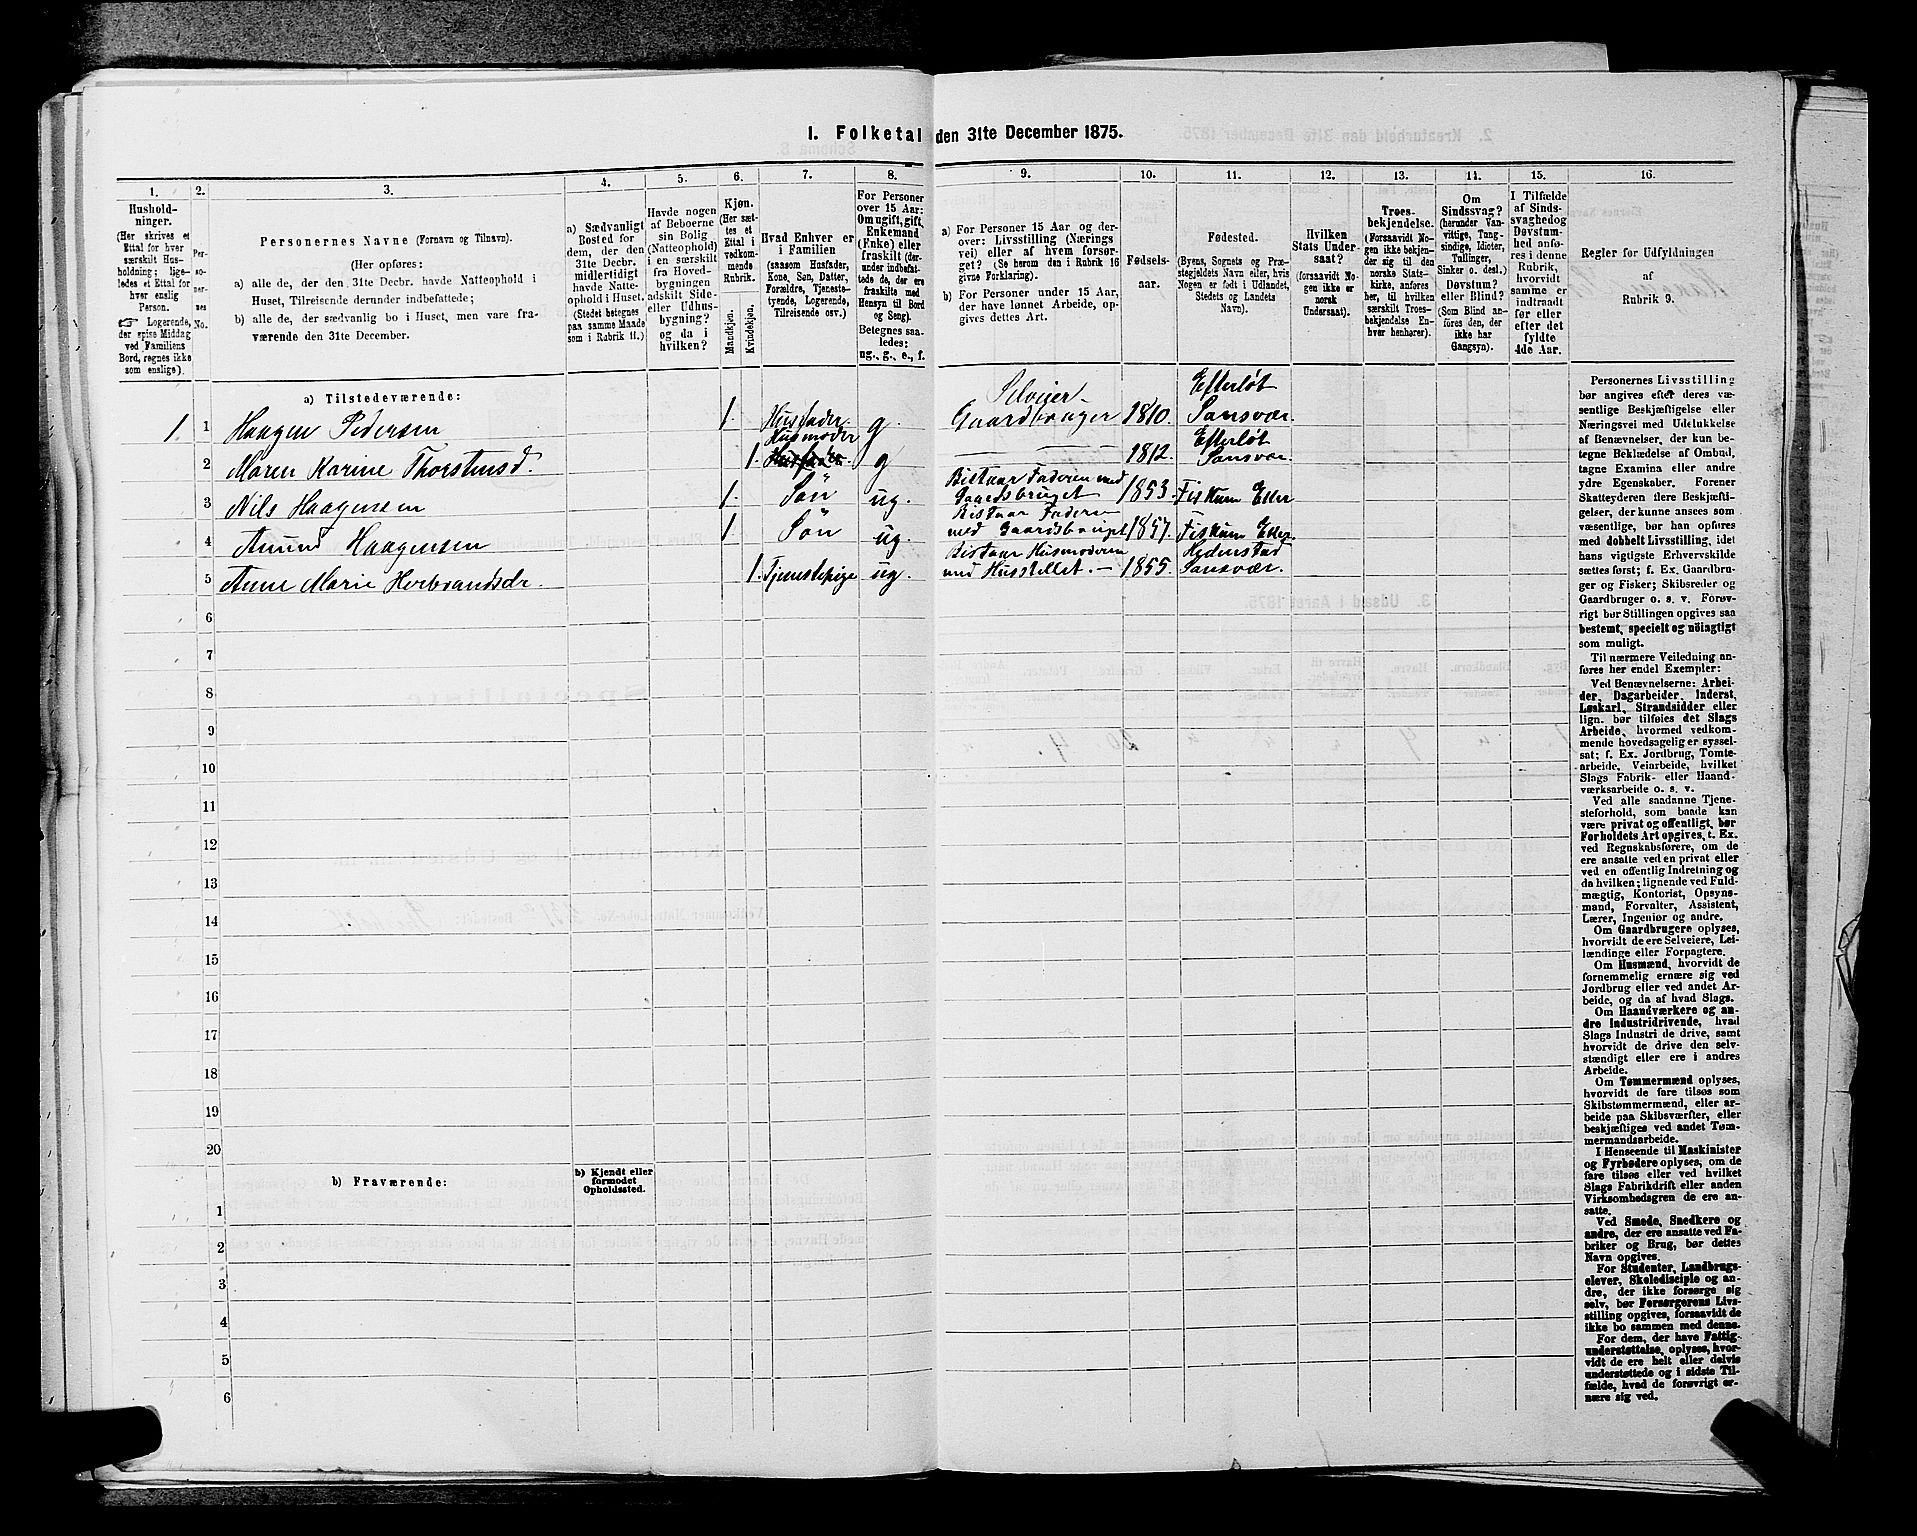 1. Folketal den 31te December 1875.
1.
Hushold-
ninger.
(Her skrives et
Ettal for hver
særskilt Hus-
holdning; lige-
ledes et Ettal for
hver enslig
Person.
☞ Logerende,
der spise Middag
ved Familiens
Bord, regnes ikke
som enslige).
2.
Per-
so-
nes
No.
3.
Personernes Navne (Fornavn og Tilnavn).
(Her opføres:
a) alle de, der den 31te Decbr. havde Natteophold i
Huset, Tilreisende derunder indbefattede;
b) alle de, der sædvanlig bo i Huset, men vare fra-
værende den 31te December.
4.
a) Sædvanligt
Bosted for
dem, der den
31te Decbr.
midlertidigt
havde Natte-
ophold i Huset.
(Stedet betegnes
paa samme Maade
som i Rubrik 11.)
5.
Havde nogen
af Beboerne
sin Bolig
(Natteophold)
i en særskilt
fra Hoved-
bygningen
adskilt Side-
eller Udhus-
bygning?
og da i
hvilken?
6.
Kjøn.
(Her sæt-
tes et
Ettal i
vedkom-
mende
Rubrik.
Mandkjøn.
Kvindekjøn.
7.
Hvad Enhver er
i Familien
(saasom Husfader,
Kone, Søn, Datter,
Forældre, Tjeneste-
tyende, Logerende,
Tilreisende osv.)
8.
For Personer
over 15 Aar:
Om ugift, gift,
Enkemand
(Enke) eller
fraskilt (der-
under indbefat-
tede de, der ere
fraskilte med
Hensyn til Bord
og Seng).
Betegnes saa-
ledes:
ug., g., e., f.
9.
a) For Personer 15 Aar og der-
over: Livsstilling (Nærings
vei) eller af hvem forsør-
get? (Se herom den i Rubrik 16
givne Forklaring).
b) For Personer under 15 Aar,
der have lønnet Arbeide, op-
gives dettes Art.
10.
Fødsels-
aar.
11.
Fødested.
(Byens, Sognets og Præ-
stegjeldets Navn eller, hvis
Nogen er født i Udlandet,
Stedets og Landets
Navn).
12.
Hvilken
Stats Under-
saat?
(forsaavidt No-
gen ikke er
norsk
Undersaat).
13.
Troes-
bekjendelse.
(Forsaavidt No-
gen ikke bekjen-
der sig til den
norske Stats-
kirke, anføres
her, til hvilken
særskilt Troes-
bekjendelse En-
hver henhører).
14.
Om
Sindssvag?
(herunder Van-
vittige, Tung-
sindige, Idioter,
Tullinger,
Sinker o. desl.)
Døvstum?
eller Blind?
(Som Blind an-
føres den, der
ikke har
Gangsyn).
15.
I Tilfælde
af Sinds-
svaghed og
Døvstum-
hed anfø-
res i denne
Rubrik,
hvorvidt
samme er
indtraadt
før eller
efter det
fyldte
4de Aar.
16.
Regler for Udfyldningen
af
Rubrik 9.
a) Tilstedeværende:
1 1 Haagen Pedersen 1. Husfader. g. Selveier- Gaardbruger 1810. Efterløt Sansvær.
2 Maren Karine Thorstensd. 1. Husmoder g — 1812. Efterløt Sansvær.
3 Nils Haagensen 1. Søn ug. Bistaar Faderen med Gaardsbruget 1853. Fiskum Eker
4 Amund Haagensen 1. Søn ug. Bistaar Faderen med Gaardsbruget 1857. Fiskum Eker.
5 Anne Marie Herbrandsdr. 1. Tjenestepige ug. Bistaar Husmoderen med Husstellet. — 1855. Hedenstad Sansvær.
6
7
8
9
10
11
12
13
14
15
16
17
18
19
20
b) Fraværende:
b) Kjendt eller
formodet
Opholdssted.
1
2
3
4
5
6
Personernes Livsstilling
bør angives efter deres væ-
sentlige Beskjæftigelse eller
Næringsvei med Udelukkelse
af Benævnelser, der kun be-
tegne Beklædelse af Ombud,
tagne Examina eller andre
ydre Egenskaber. Forener
Skatteyderen flere Beskjæfti-
gelser, der kunne ansees som
væsentlige, bør han opføres
med dobbelt Livsstilling, idet
hans vigtigste Erhvervskilde
sættes først; f. Ex. Gaardbru-
ger og Fisker; Skibsreder og
Gaardbruger o. s. v. Forøv-
rigt bør Stillingen opgives saa
bestemt, specielt og nöiagtigt
som muligt.
Til nærmere Veiledning an-
føres her endel Exempler:
Ved Benævnelserne: Arbei-
der, Dagarbeider, Inderst,
Løskarl, Strandsidder eller
lign. bør tilføies det Slags
Arbeide, hvormed vedkom-
mende hovedsagelig er syssel-
sat; f. Ex. Jordbrug, Tomte-
arbeide, Veiarbeide, hvilket
Slags Fabrik- eller Haand-
værksarbeide o. s. v.
Ved alle saadanne Tjene-
steforhold, som baade kan
være privat og offentligt, bør
Forholdets Art opgives, t. Ex.
ved Regnskabsførere, om de
ere ansatte ved en privat eller
ved en offentlig Indretning og
da hvilken; lignende ved Fuld-
mægtig, Kontorist, Opsyns-
mand, Forvalter, Assistent,
Lærer, Ingeniør og andre.
Om Gaardbrugere oplyses,
hvorvidt de ere Selveiere, Lei-
lændinge eller Forpagtere.
Om Husmænd, hvorvidt de
fornemmelig ernære sig ved
Jordbrug eller ved andet Ar-
beide, og da af hvad Slags.
Om Haandværkere og an-
dre Industridrivende, hvad
Slags Industri de drive, samt
hvorvidt de drive den selv-
stændigt eller ere i andres
Arbeide.
Om Tømmermænd oplyses,
hvorvidt de fare tilsøs som
Skibstømmermænd, eller ar-
beide paa Skibsværfter, eller
beskjæftiges ved andet Tøm-
mermandsarbeide.
I Henseende til Maskinister
og Fyrbødere oplyses, om de
fare tilsøs eller ved hvilket
Slags Fabrikdrift eller anden
Virksombedsgren de ere an-
satte.
Ved Smede, Snedkere og
andre, der ere ansatte ved Fa-
briker og Brug, bør dettes
Navn opgives.
For Studenter, Landbrugs-
elever, Skoledisciple og an-
dre, der ikke forsørge sig
selv, bør Forsørgerens Livs-
stilling opgives, forsaavidt de
ikke bo sammen med denne.
For dem, der have Fattig-
understøttelse, oplyses, hvor-
vidt de ere helt eller delvis
understøttede og i sidste Til-
fælde, hvad de forøvrigt er-
nære sig ved.